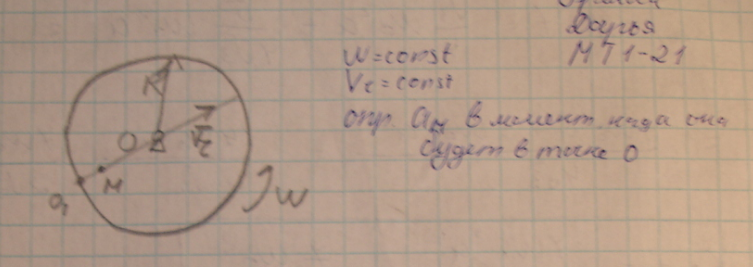 Дарья
МТ1-21
W=const
Vr=const
опр. aм в момент, когда она
будет в точке O
R
O
Vr
M
W